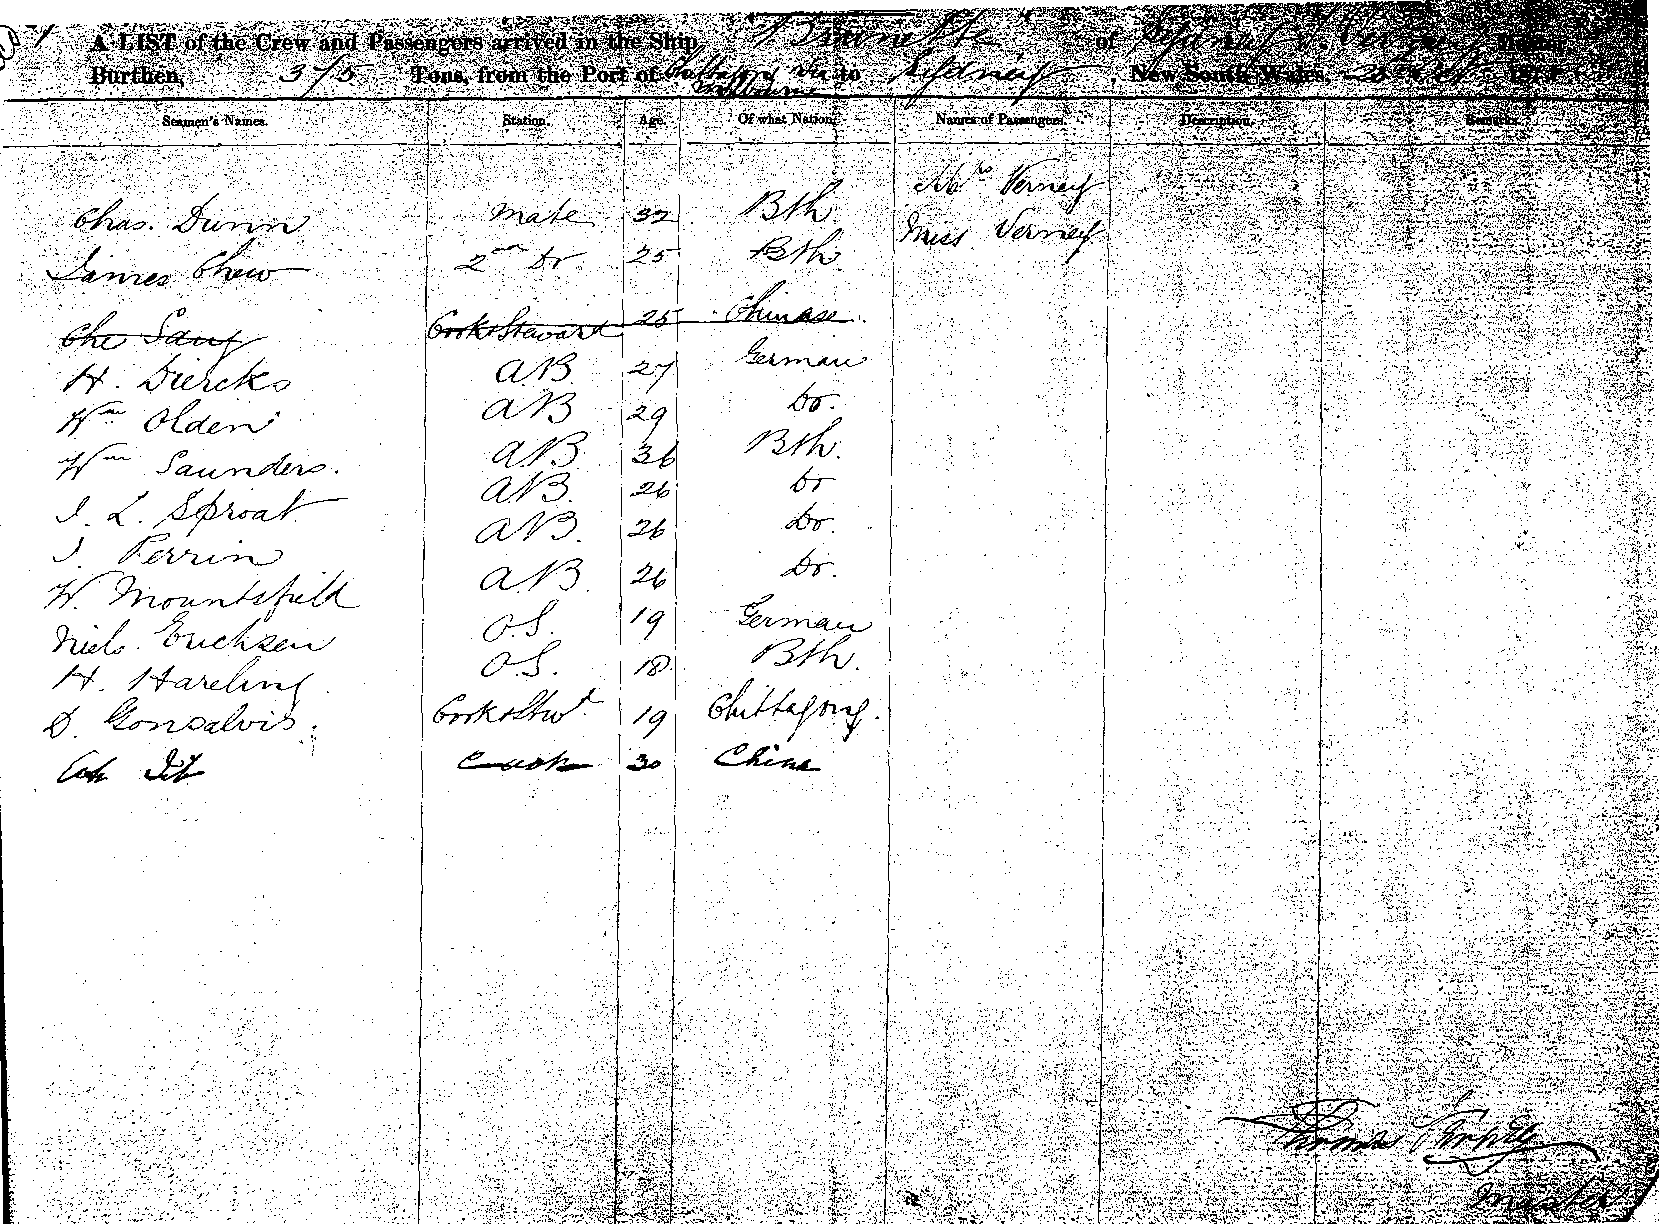 A LIST of the Crew and Passengers arrived in the Ship Brunette of Sydney Master,
Burthen, 375 Tons, from the Port of Chittagong via Melbourne to Sydney, New South Wales,
Seamen's Names. Station. Age. Of what Nation. Names of Passengers. Description. Remarks.
Mrs Verney
Chas. Dunn Mate 32 Bth Miss Verney
James Chew 2nd Do 25 Bth.
Che Sang Cook & Steward 25 Chinese
H. Diercks AB 27 German
Wm Olden AB 29 Do.
Wm Saunders. AB 36 Bth.
J. L. Sproat AB. 26 Do
J. Perrin AB. 26 Do.
W. Mountsfield AB 26 Do.
Niels Ericksen O.S. 19 German
H. Hareling O.S. 18 Bth.
D. Gonsalvis. Cook & Stwd 19 Chittagong.
Cook 30 China
Thomas
Master